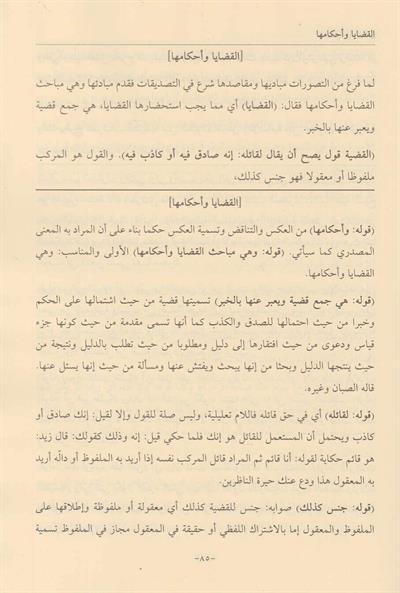 القضايا وأحكامها
[القضايا وأحكامها]
لما فرغ من التصورات مباديها ومقاصدها شرع في التصديقات فقدم مبادئها وهي مباحث
القضايا وأحكامها فقال: (القضايا) أي مما يجب استحضارها القضايا، هي جمع قضية
ويعبر عنها بالخبر.
(القضية قول يصح أن يقال لقائله: إنه صادق فيه أو كاذب فيه). والقول هو المركب
ملفوظا أو معقولا فهو جنس كذلك،
[القضايا وأحكامها]
(قوله: وأحكامها) من العكس والتناقض وتسمية العكس حكما بناء على أن المراد به المعنى
المصدري كما سيأتي. (قوله: وهي مباحث القضايا وأحكامها) الأولى والمناسب: وهي
القضايا وأحكامها.
(قوله: هي جمع قضية ويعبر عنها بالخبر) تسميتها قضية من حيث اشتمالها على الحكم
وخبرا من حيث احتمالها للصدق والكذب كما أنها تسمى مقدمة من حيث كونها جزء
قياس ودعوى من حيث افتقارها إلى دليل ومطلوبا من حيث تطلب بالدليل ونتيجة من
حيث ينتجها الدليل وبحثا من حيث إنها يبحث ويفتش عنها ومسألة من حيث إنها يسئل عنها.
قاله الصبان وغيره.
(قوله: لقائله) أي في حق قائله فاللام تعليلية، وليس صلة للقول وإلا لقيل: إنك صادق أو
كاذب ويحتمل أن المستعمل للقائل هو إنك فلما حكي قيل: إنه وذلك كقولك: قال زيد:
هو قائم حكاية لقوله: أنا قائم ثم المراد قائل المركب نفسه إذا أريد به الملفوظ أو دالّه أريد
به المعقول هذا ودع عنك حيرة الناظرين.
(قوله: جنس كذلك) صوابه: جنس للقضية كذلك أي معقولة أو ملفوظة وإطلاقها على
الملفوظ والمعقول إما بالاشتراك اللفظي أو حقيقة في المعقول مجاز في الملفوظ تسمية
-٨٥-